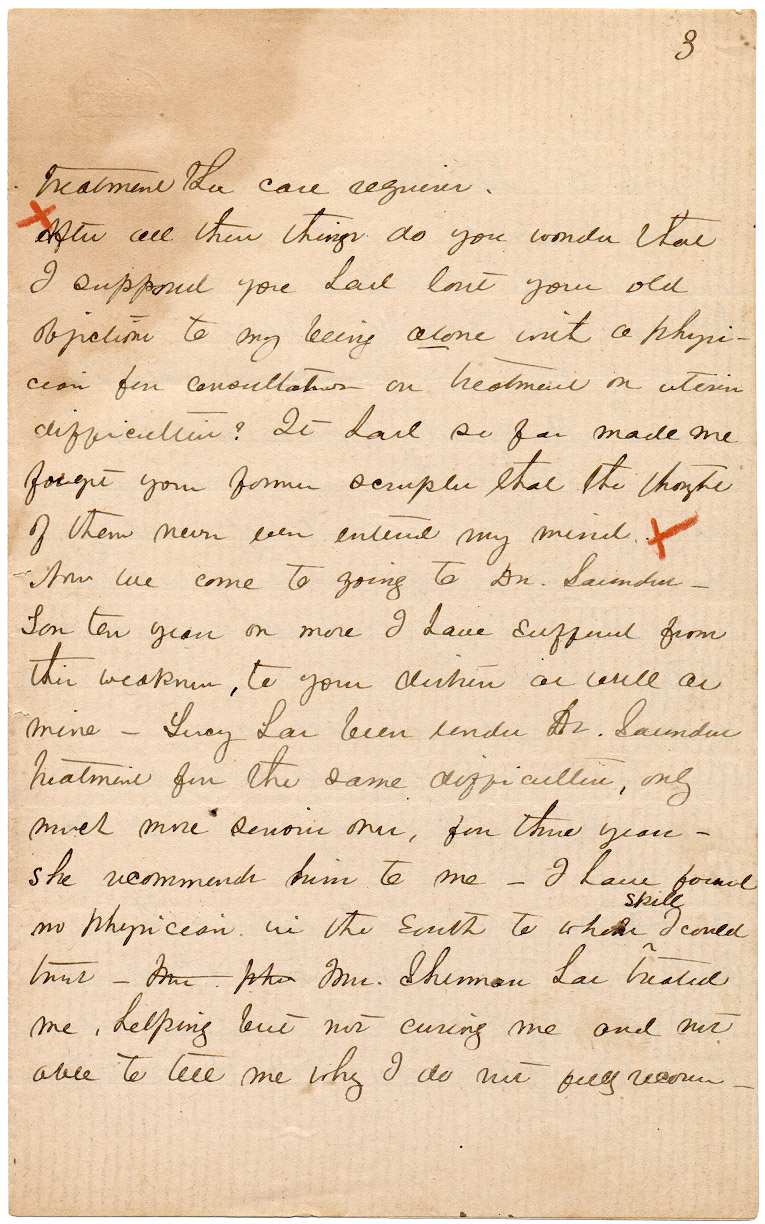 3
treatment the case requires.
After all these things do you wonder that
I supposed you had lost your old
objections to my being alone with a physi-
cian for consultation or treatment on uterin
difficulties? It had so far made me
forget your former scruples that the thought
of them never even entered my mind.
Now we come to going to Dr. Saunders -
For ten years or more I have suffered from
this weakness, to your distress as well as
mine - Lucy has been under Dr. Saunders
treatment for the same difficulties, only
much more serious ones, for three years -
she recommends him to me - I have found
no physician in the South to whose skill I could
trust - Mrs. Sherman has treated
me, helping but not curing me and not
able to tell me why I do not fully recover -